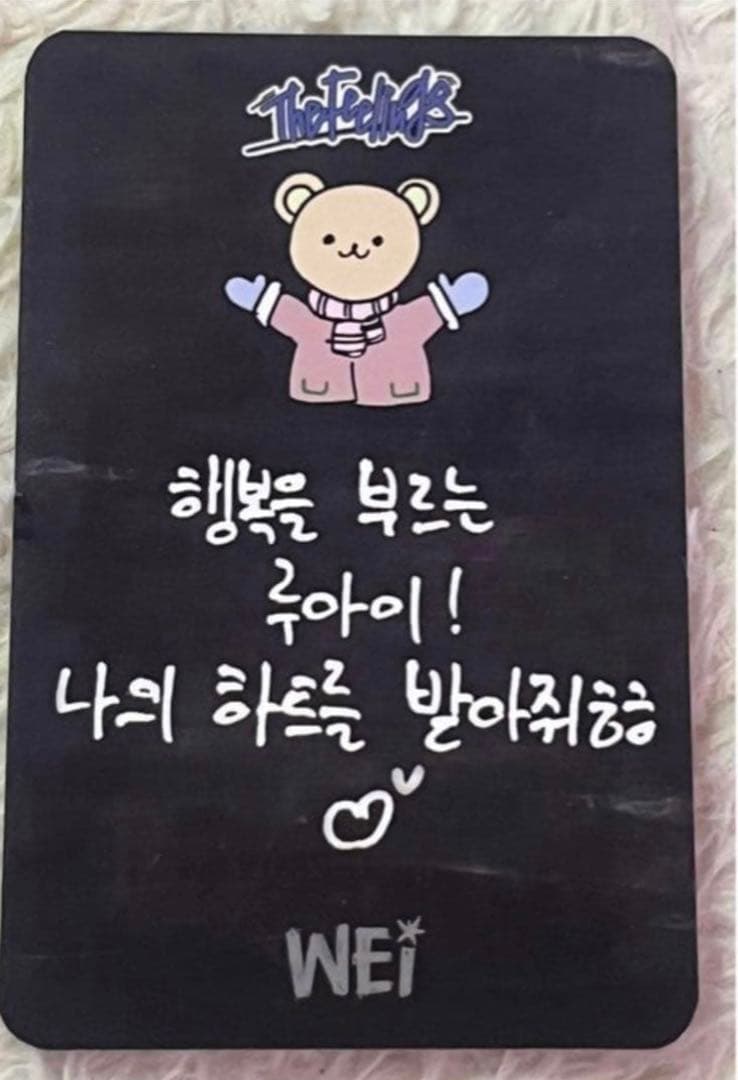 The Feelings
행복을 부르는
루아이!
나의 하트를 받아줘흠흠
WEi